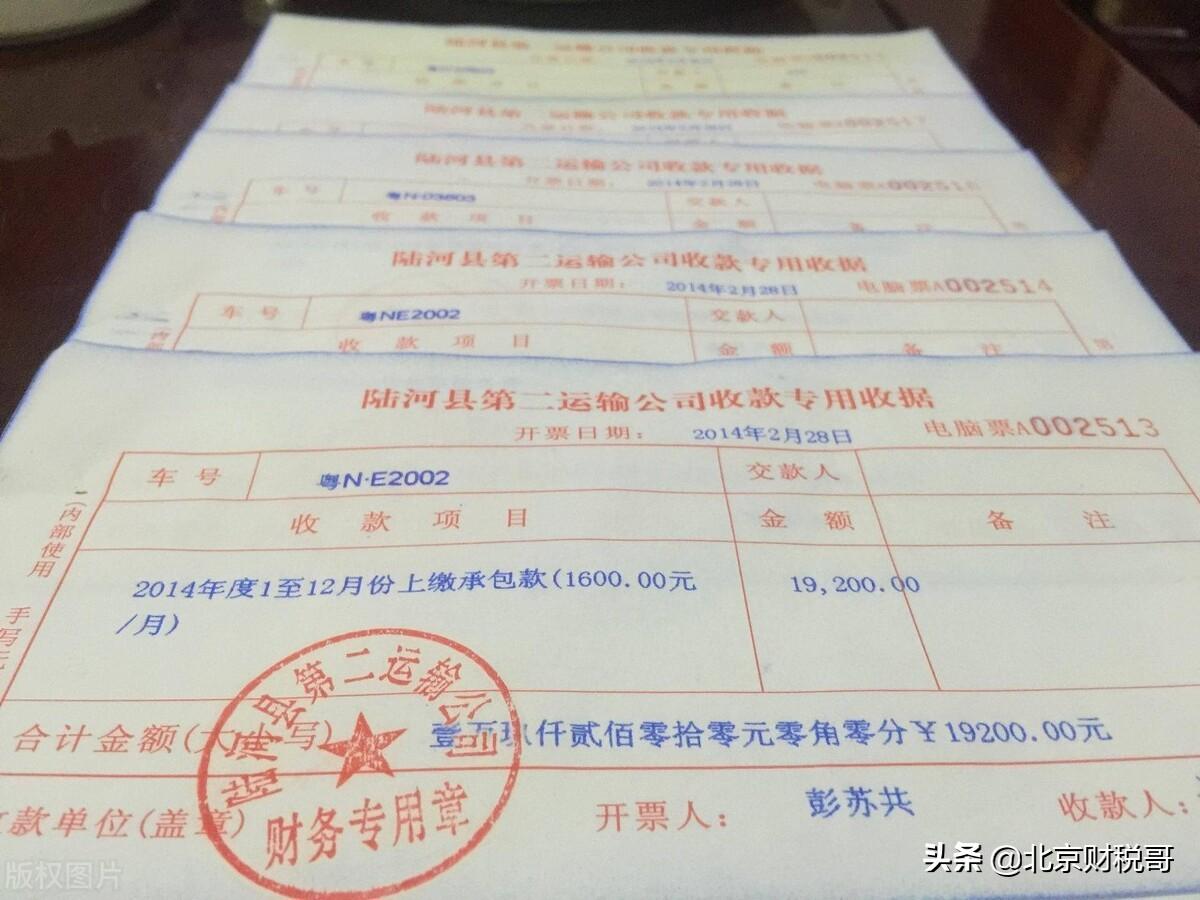 陆河县第二运输公司收款专用收据
002517
陆河县第二运输公司收款专用收据
开票日期： 2014年2月28日
车号 粤N·03603 交款人
收款项目 金额 备注
陆河县第二运输公司收款专用收据
开票日期： 2014年2月28日 电脑票A002514
车号 粤NE2002 交款人
收款项目 金额 备注 第
内部
陆河县第二运输公司收款专用收据
开票日期： 2014年2月28日 电脑票A002513
车号 粤N·E2002 交款人
收款项目 金额 备注
(内部使用 手写无
2014年度1至12月份上缴承包款(1600.00元 19,200.00
/月)
合计金额(大写) 壹万玖仟贰佰零拾零元零角零分￥19200.00元
款单位(盖章) 开票人： 彭苏共 收款人：
陆河县第二运输公司
财务专用章
版权图片
头条 @北京财税哥